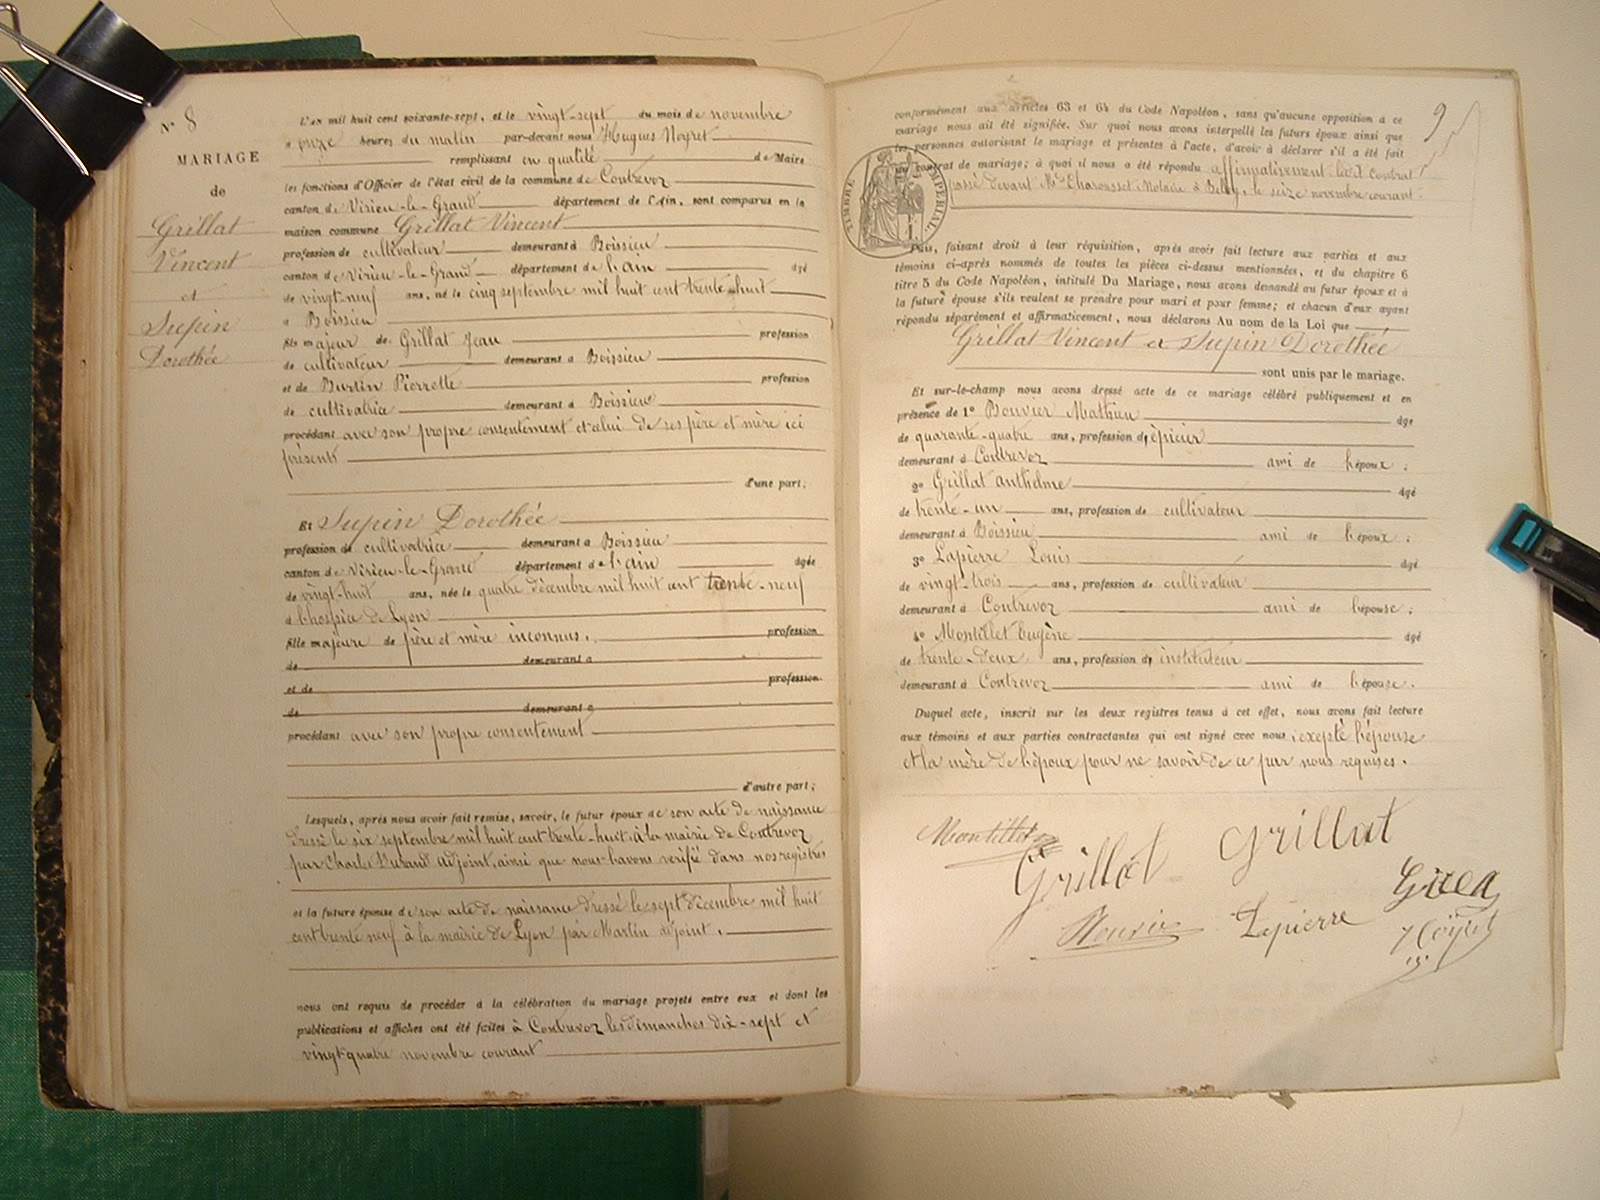 N° 8
MARIAGE
de
Grillat
Vincent
et
Supin
Dorothée
L'an mil huit cent soixante-sept, et le vingt-sept du mois de novembre
à onze heures du matin par-devant nous Hugues Noyret
remplissant en qualité de Maire
les fonctions d'Officier de l'état civil de la commune de Contrevoz
canton de Virieu-le-Grand département de l'Ain, sont comparus en la
maison commune Grillat Vincent
profession de cultivateur demeurant à Boissieu
canton de Virieu-le-Grand département de l'ain âgé
de vingt-neuf ans, né le cinq septembre mil huit cent trente-huit
à Boissieu
fils majeur de Grillat Jean profession
de cultivateur demeurant à Boissieu
et de Burtin Pierrette profession
de cultivatrice demeurant à Boissieu
procédant avec son propre consentement et celui de ses père et mère ici
présents
d'une part;
Et Supin Dorothée
profession de cultivatrice demeurant à Boissieu
canton de Virieu-le-Grand département de l'ain âgée
de vingt-huit ans, née le quatre décembre mil huit cent trente-neuf
à l'hospice de Lyon
fille majeure de père et mère inconnus. profession
de demeurant à
et de profession
de demeurant à
procédant avec son propre consentement
d'autre part;
Lesquels, après nous avoir fait remise, savoir, le futur époux de son acte de naissance
dressé le six septembre mil huit cent trente-huit à la mairie de Contrevoz
par Charles Durand adjoint, ainsi que nous l'avons vérifié dans nos registres
et la future épouse de son acte de naissance dressé le sept décembre mil huit
cent trente neuf à la mairie de Lyon par Martin adjoint.
nous ont requis de procéder à la célébration du mariage projeté entre eux et dont les
publications et affiches ont été faites à Contrevoz les dimanches dix-sept et
vingt-quatre novembre courant
9
conformément aux articles 63 et 64 du Code Napoléon, sans qu'aucune opposition à ce
mariage nous ait été signifiée. Sur quoi nous avons interpellé les futurs époux ainsi que
les personnes autorisant le mariage et présentes à l'acte, d'avoir à déclarer s'il a été fait
contrat de mariage; à quoi il nous a été répondu affirmativement led. contrat
passé devant Me Charousset Notaire à Belley, le seize novembre courant.
TIMBRE IMPERIAL
Puis, faisant droit à leur réquisition, après avoir fait lecture aux parties et aux
témoins ci-après nommés de toutes les pièces ci-dessus mentionnées, et du chapitre 6
titre 5 du Code Napoléon, intitulé Du Mariage, nous avons demandé au futur époux et à
la future épouse s'ils veulent se prendre pour mari et pour femme; et chacun d'eux ayant
répondu séparément et affirmativement, nous déclarons Au nom de la Loi que
Grillat Vincent et Supin Dorothée
sont unis par le mariage.
Et sur-le-champ nous avons dressé acte de ce mariage célébré publiquement et en
présence de 1° Bouvier Mathieu âgé
de quarante-quatre ans, profession d'épicier
demeurant à Contrevoz ami de l'époux;
2° Grillat anthelme âgé
de trente-un ans, profession de cultivateur
demeurant à Boissieu ami de l'époux;
3° Lapierre Louis âgé
de vingt-trois ans, profession de cultivateur
demeurant à Contrevoz ami de l'épouse;
4° Montillet Eugène âgé
de trente-deux ans, profession d'instituteur
demeurant à Contrevoz ami de l'épouse.
Duquel acte, inscrit sur les deux registres tenus à cet effet, nous avons fait lecture
aux témoins et aux parties contractantes qui ont signé avec nous, excepté l'épouse
et la mère de l'époux pour ne savoir de ce par nous requises.
Montillet
Grillat Grillat
Lapierre